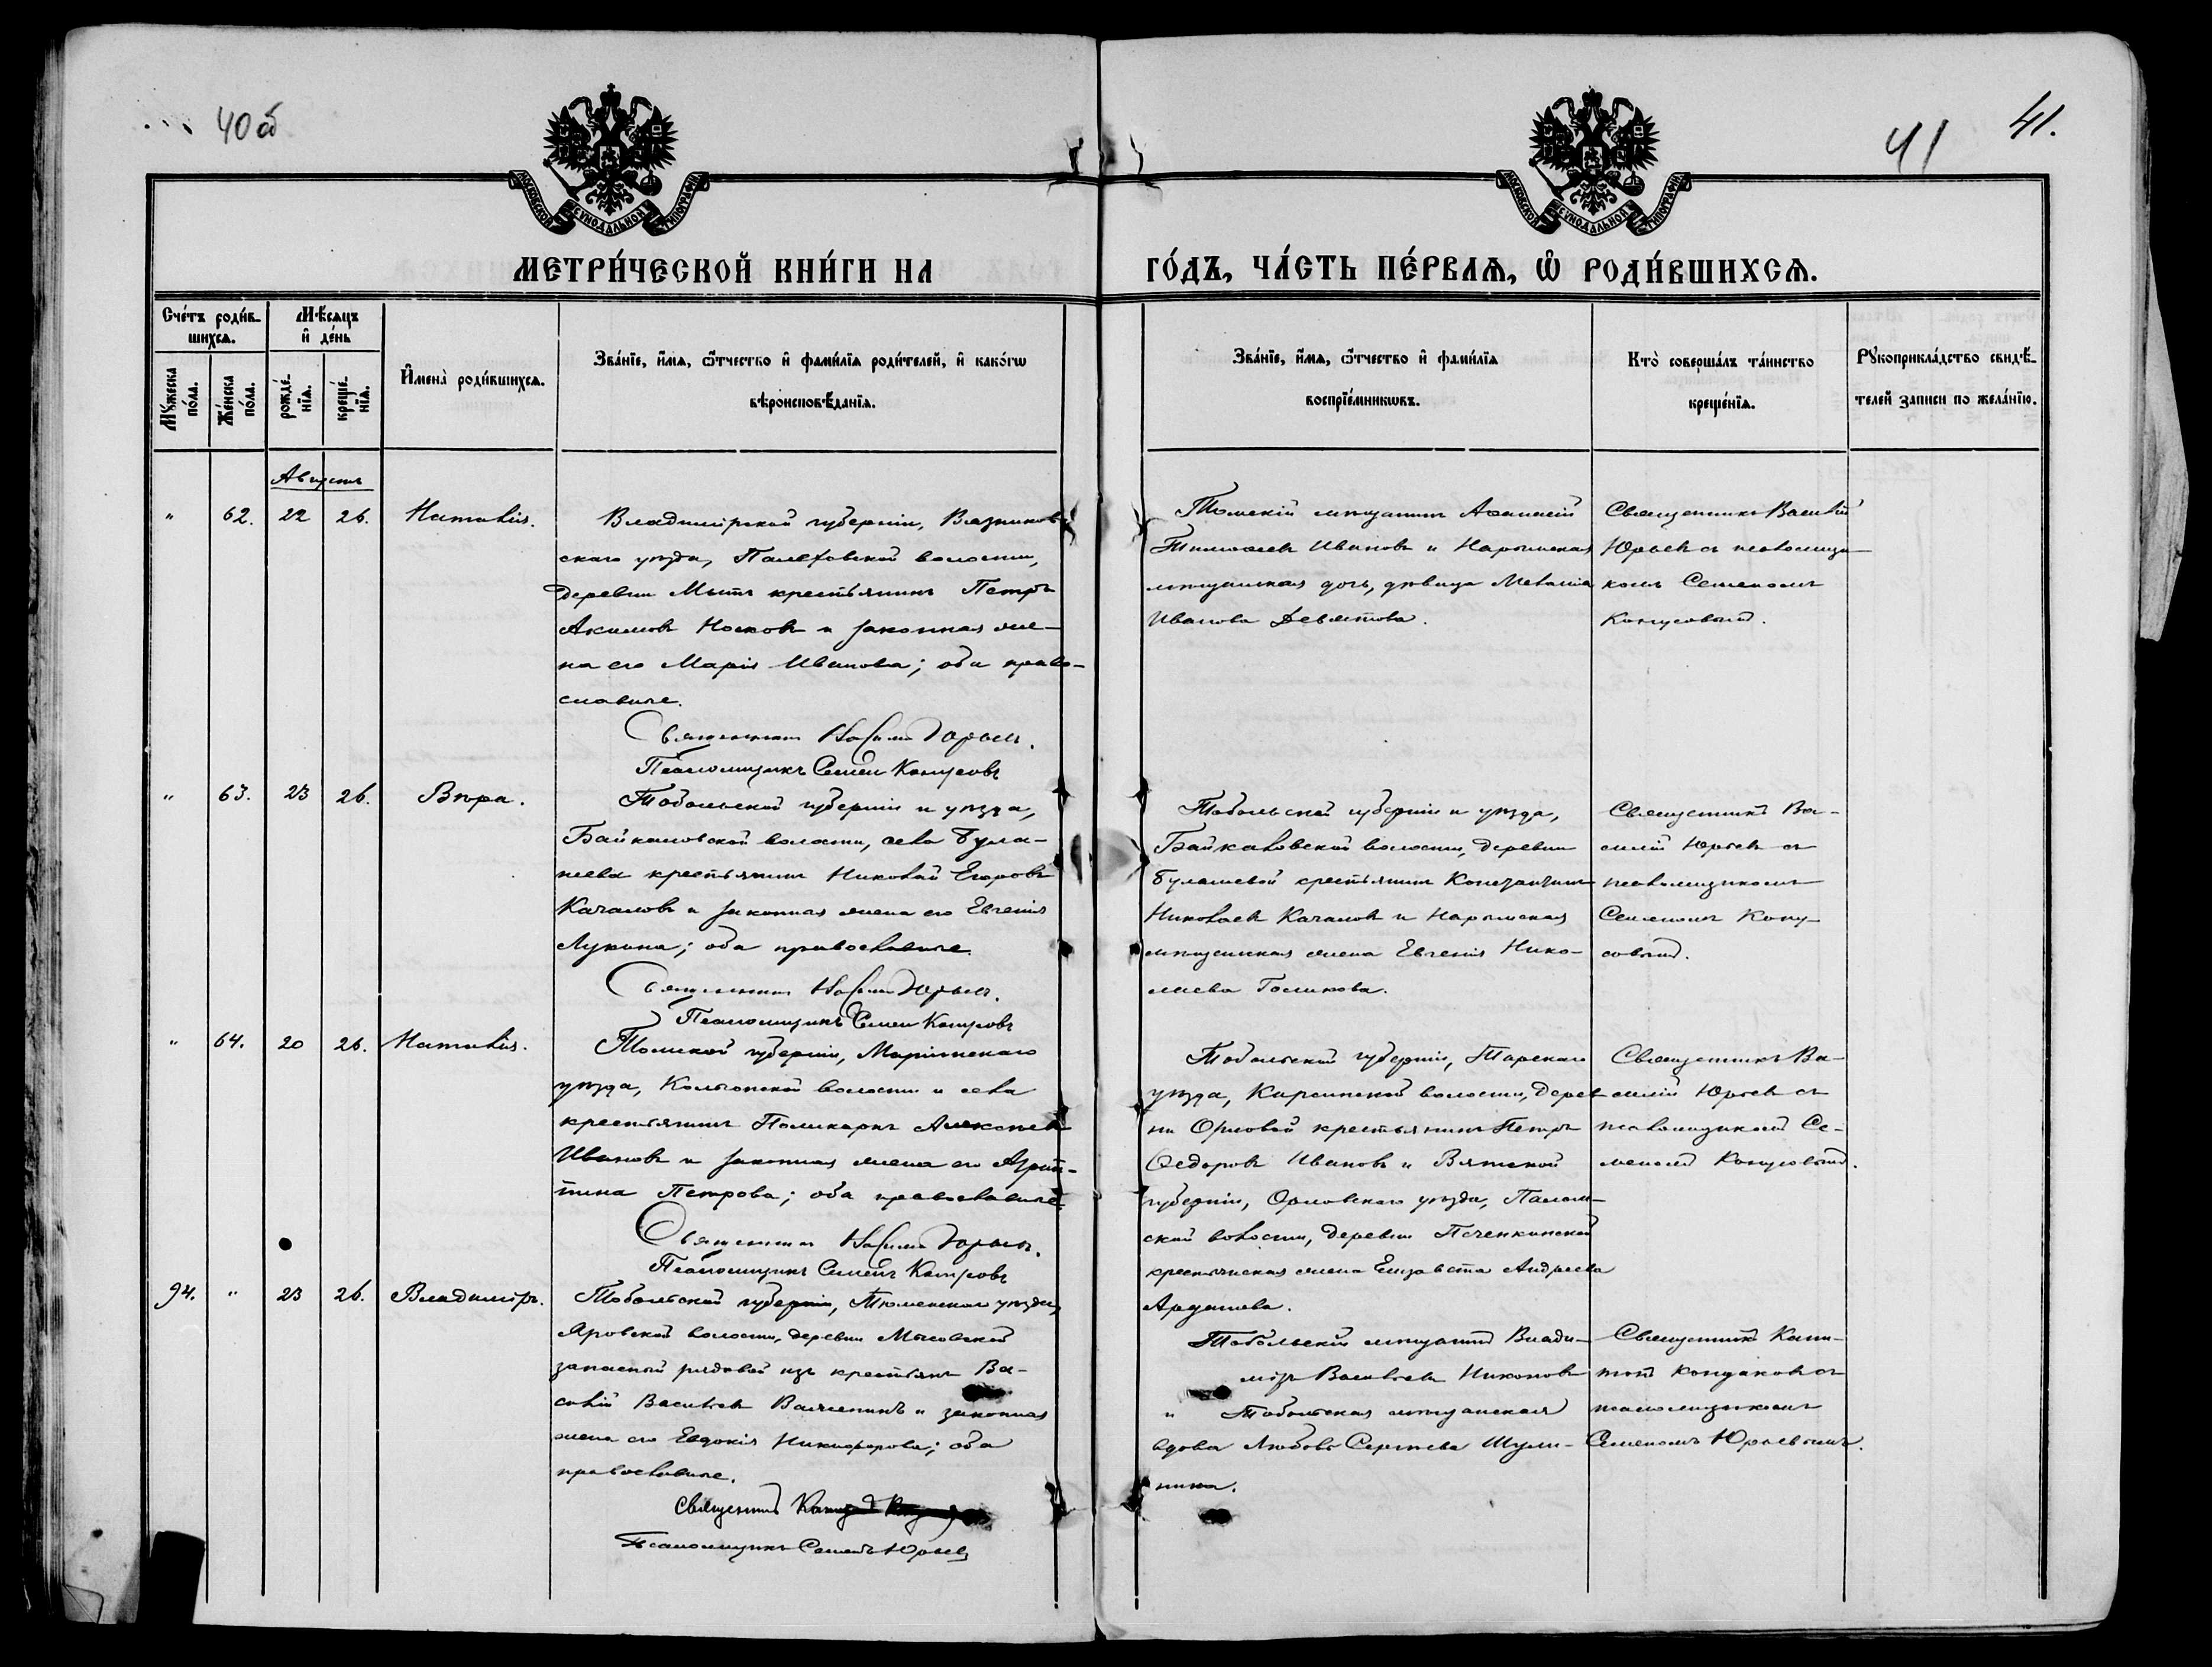 40 об
41
41.
МОСКОВСКОЙ СѴНОДАЛЬНОЙ ТИПОГРАФІИ
МОСКОВСКОЙ СѴНОДАЛЬНОЙ ТИПОГРАФІИ
МЕТРИ́ЧЕСКОЙ КНИ́ГИ НА
ГО́ДЪ, ЧА́СТЬ ПЕ́РВАѦ, Ѡ҆ РОДИ́ВШИХСѦ.
Сче́тъ роди́в-
шихсѧ.
Мѣ́сяцъ
и҆ де́нь
Мꙋ́жеска
по́ла.
Же́нска
по́ла.
рожде́-
нїѧ.
креще́-
нїѧ.
И҆мена̀ роди́вшихсѧ.
Зва́нїе, и҆́мѧ, ѻ҆́тчество и҆ фами́лїѧ роди́телей, и҆ како́гѡ
вѣроисповѣ́данїѧ.
Зва́нїе, и҆́мѧ, ѻ҆́тчество и҆ фами́лїѧ
воспрїе́мникѡвъ.
Кто̀ соверша́лъ та́инство
креще́нїѧ.
Рꙋкоприкла́дство свидѣ́-
телей записи по жела́нїю.
Августъ
" 62. 22 26. Наталія.
Владимірской губерніи, Вязников-
скаго уѣзда, Палеховской волости,
деревни Мытъ крестьянинъ Петръ
Акимовъ Носковъ и законная же-
на его Марія Иванова; оба право-
славные.
Священникъ Василій Юрьевъ.
Псаломщикъ Семен Конусовъ
Томскій мѣщанинъ Аѳанасій
Тимоѳеевъ Ивановъ и Нарымская
мѣщанская дочь, дѣвица Меланія
Иванова Девятова.
Священникъ Василій
Юрьевъ съ псаломщи-
комъ Семеномъ
Конусовымъ.
" 63. 23 26. Вѣра.
Тобольской губерніи и уѣзда,
Байкаловской волости, села Була-
шева крестьянинъ Николай Егоровъ
Качаловъ и законная жена его Евгенія
Лукина; оба православные.
Священникъ Василій Юрьевъ.
Псаломщикъ Семен Конусовъ
Тобольской губерніи и уѣзда,
Байкаловской волости, деревни
Булашевой крестьянинъ Константинъ
Николаевъ Качаловъ и Нарымская
мѣщанская жена Евгенія Нико-
лаева Голикова.
Священникъ Ва-
силій Юрьевъ съ
псаломщикомъ
Семеномъ Кону-
совымъ.
" 64. 20 26. Наталія.
Томской губерніи, Маріинскаго
уѣзда, Колыонской волости и села
крестьянинъ Поликарпъ Алексѣевъ
Ивановъ и законная жена его Агрип-
пина Петрова; оба православные.
Священникъ Василій Юрьевъ.
Псаломщикъ Семенъ Конусовъ
Тобольской губерніи, Тарскаго
уѣзда, Карсинской волости, дерев-
ни Орловой крестьянинъ Петръ
Ѳедоровъ Ивановъ и Вятской
губерніи, Орловскаго уѣзда, Палом-
ской волости, деревни Печенкинской
крестьянская жена Елизавета Андреева
Ардашева.
Священникъ Ва-
силій Юрьевъ съ
псаломщикомъ Се-
меномъ Конусовымъ.
94. " 23 26. Владиміръ.
Тобольской губерніи, Тюменскаго уѣзда,
Яровской волости, деревни Мысовской
запасный рядовой изъ крестьянъ Ва-
силій Васильевъ и законная
жена его Евдокія Никифорова; оба
православные.
Священникъ
Псаломщикъ Семенъ Юрьевъ
Тобольскій мѣщанинъ Влади-
міръ Васильевъ Никоновъ
и Тобольская мѣщанская
вдова Любовь Сергѣева Шули-
нина.
Священникъ Капи-
тонъ Кондаковъ съ
псаломщикомъ
Семеномъ Юрьевымъ.